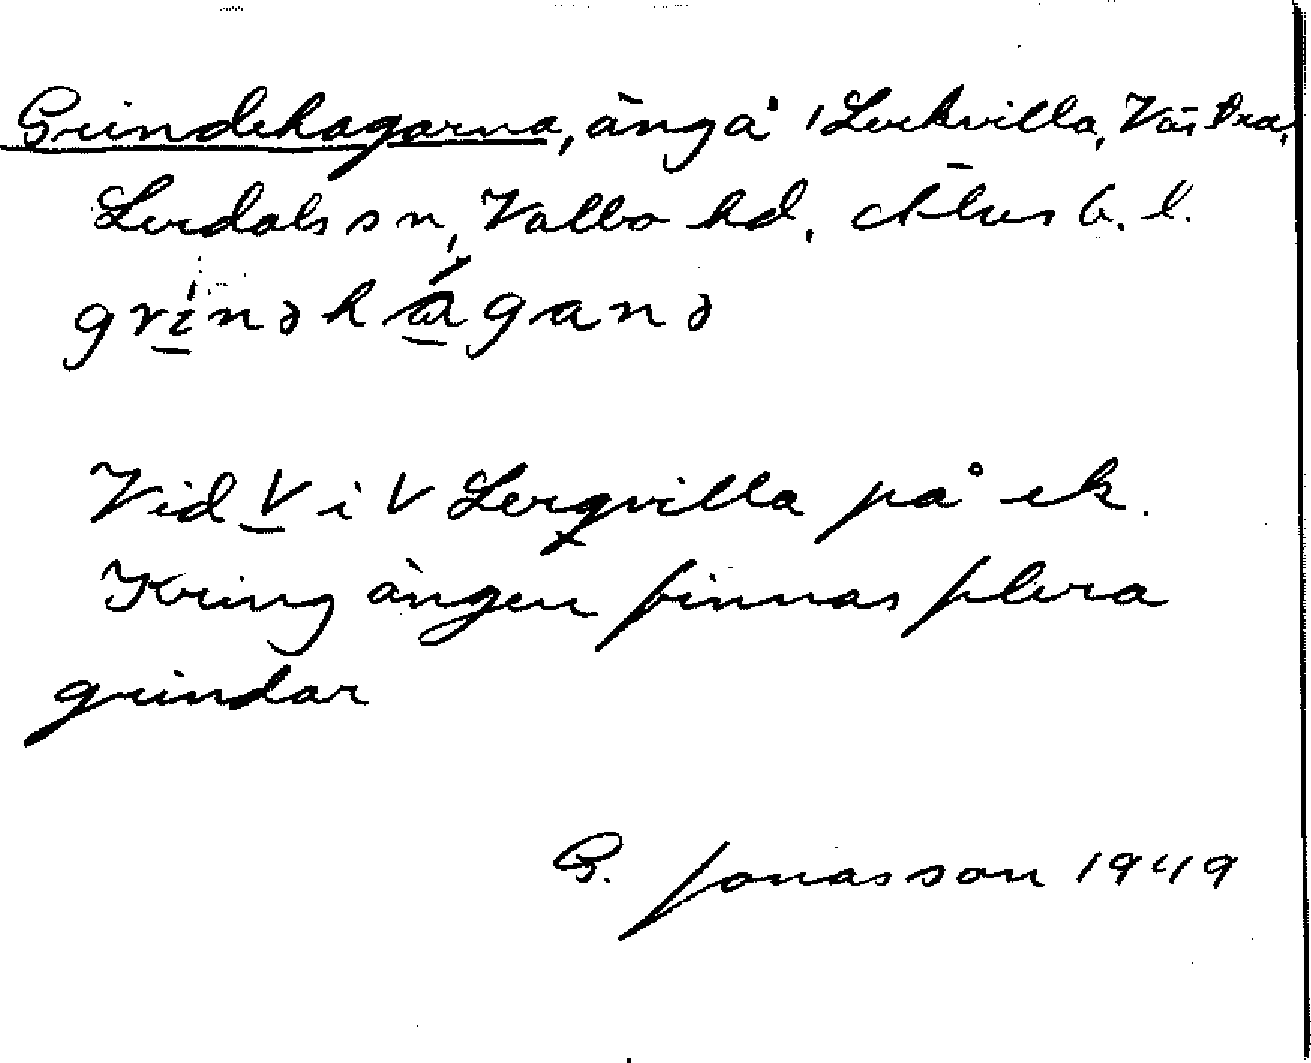 Grindehagarna, äng å 1 Lerkvilla, Västra,
Lerdals sn, Valbo hd, Älvs b. l.
grinəhaganə
Vid V i V Lergvilla på ek.
Kring ängen finnas flera
grindar
G. Jonasson 1949